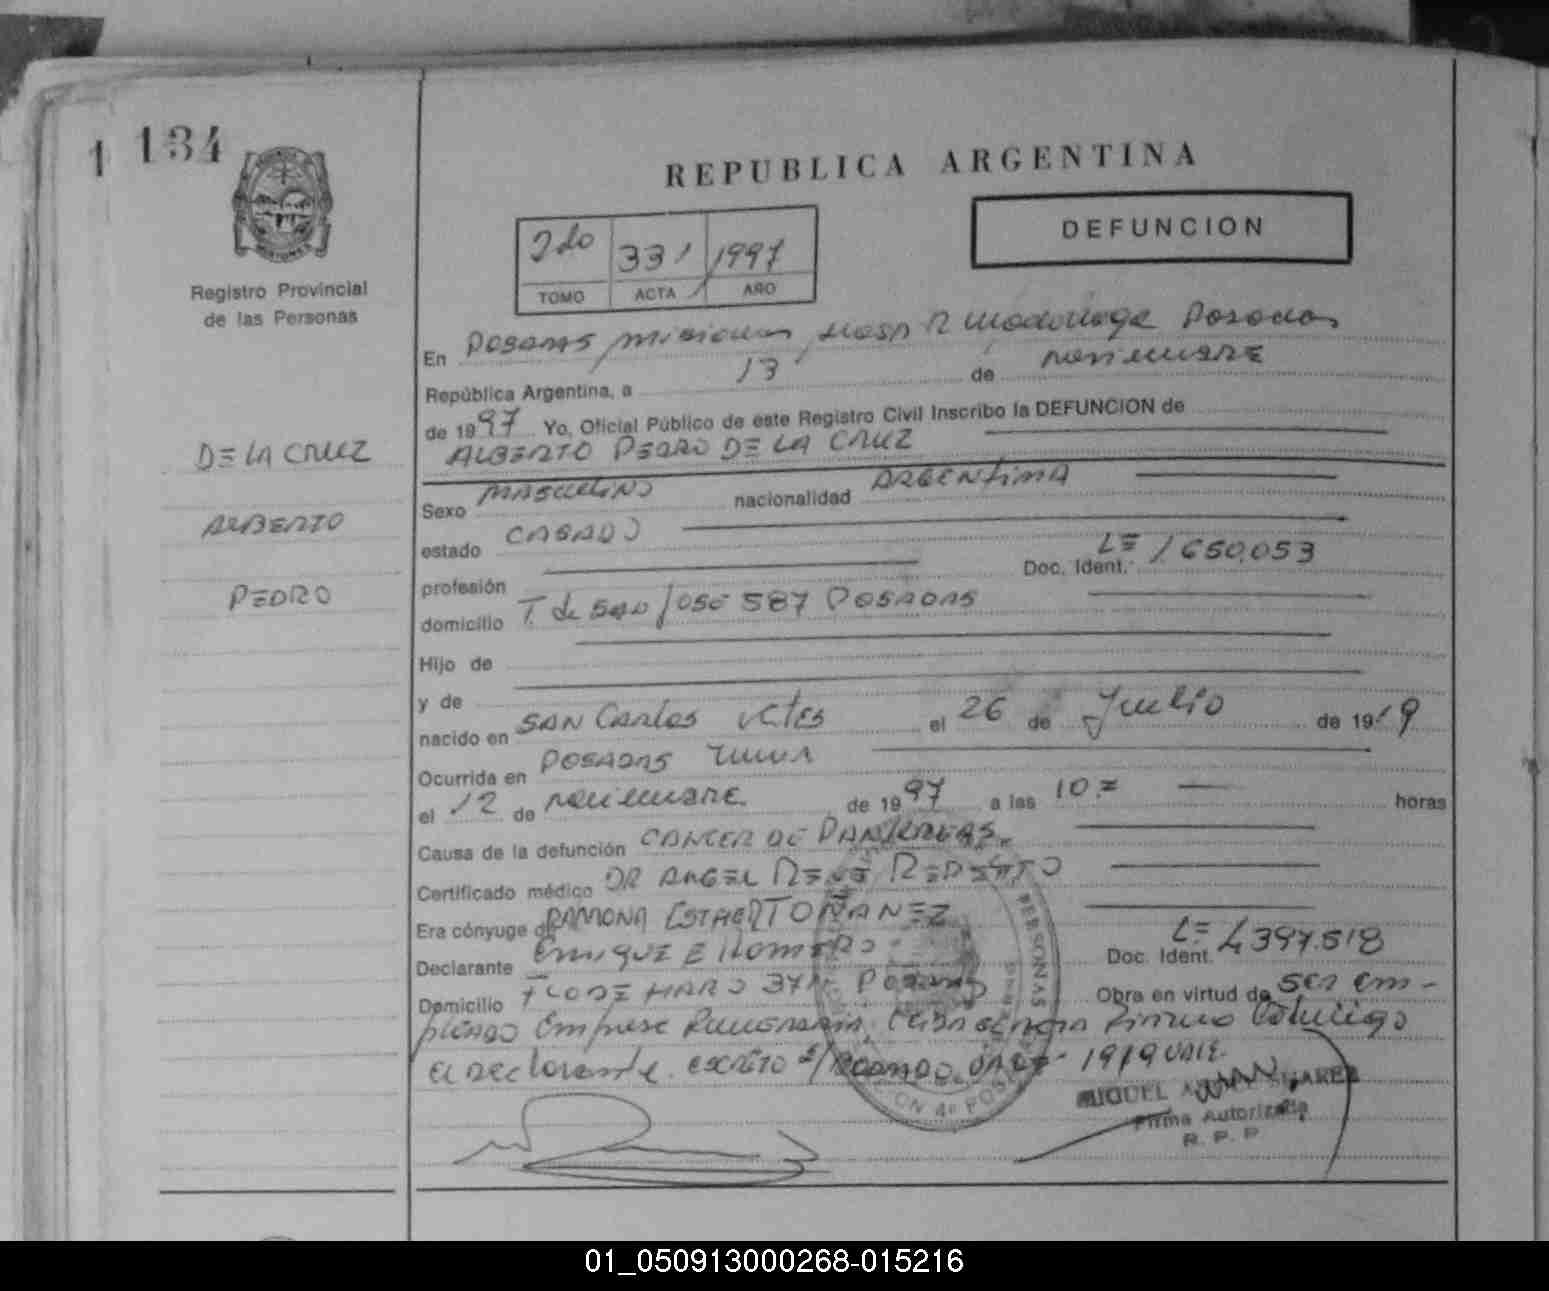 1 134
REPUBLICA ARGENTINA
DEFUNCION
2do 331 1997
TOMO ACTA AÑO
Registro Provincial
de las Personas
DE LA CRUZ
ALBERTO
PEDRO
En POSADAS, misiones, Hosp R Madariaga Posadas
República Argentina, a 13 de noviembre
de 1997 Yo, Oficial Público de este Registro Civil Inscribo la DEFUNCION de
ALBERTO PEDRO DE LA CRUZ
Sexo MASCULINO nacionalidad ARGENTINA
estado CASADO
profesión Doc. Ident. LE 1.650.053
domicilio T. de SAN JOSE 587 POSADAS
Hijo de
y de
nacido en SAN CARLOS CTES el 26 de Julio de 1919
Ocurrida en POSADAS
el 12 de noviembre de 1997 a las 10 horas
Causa de la defunción CANCER DE PANKREAS
Certificado médico DR ANGEL RENE REPETTO
Era cónyuge de RAMONA ESTHER TOÑANEZ
Declarante ENRIQUE E ROMERO Doc. Ident. LE 4.397.518
Domicilio F. POSADAS Obra en virtud de ser em-
pleado Empresa Funeraria firma conmigo
el declarante. escrito 1919 VALE
MIGUEL SUAREZ
Firma Autorizada
R. P. P
PERSONAS
01_050913000268-015216